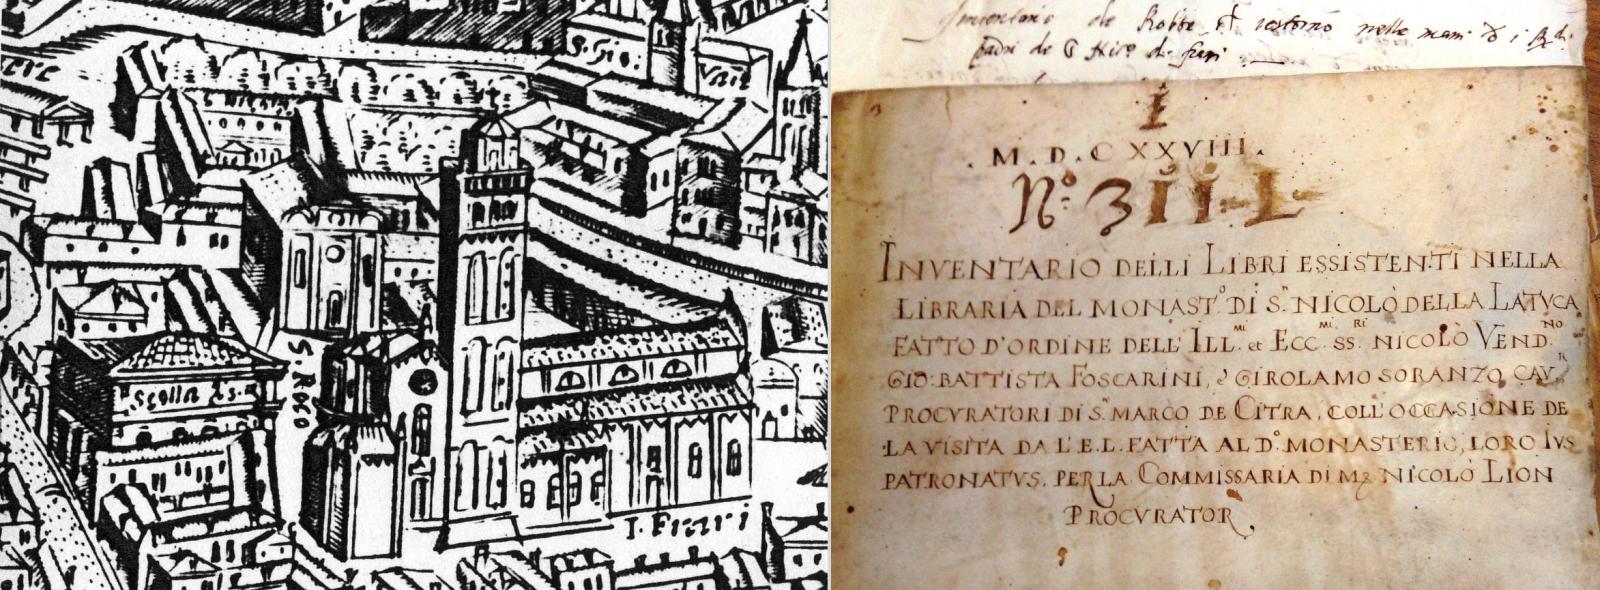 S. Gio.
S. Nicolo
Scolla
S. Roco
I. Frari
Inventario de Robbe et restorno nelle mani
padri de
I
. M. D. C XXVIII.
INVENTARIO DELLI LIBRI ESSISTENTI NELLA
LIBRARIA DEL MONAST.º DI S.ⁿ NICOLÒ DELLA LATVCA
FATTO D'ORDINE DELL' ILL.ᴹᴵ et ECC.ᴹᴵ SS.ᴿᴵ NICOLÒ VEND.ᴺᴼ
GIO: BATTISTA FOSCARINI, è GIROLAMO SORANZO CAV.ᴿ
PROCVRATORI DI S.ⁿ MARCO DE CITRA, COLL'OCCASIONE DE
LA VISITA DA L'E.L. FATTA AL D.º MONASTERIO, LORO IVS
PATRONATVS. PER LA COMMISSARIA DI Mz NICOLÒ LION
PROCVRATOR